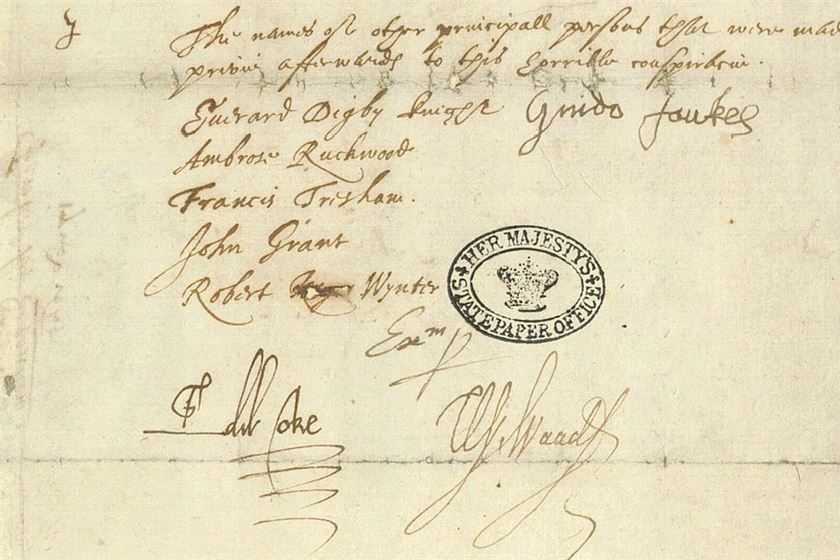 The names of other principall persons that were mad
privie afterwards to this horrible conspiracie.
Everard Digby knight Guido fawkes
Ambrose Ruckwood
Francis Tresham.
John Grant
Robert Wynter
HER MAJESTY'S
STATE PAPER OFFICE
Exm p
Edw Coke
W Waad